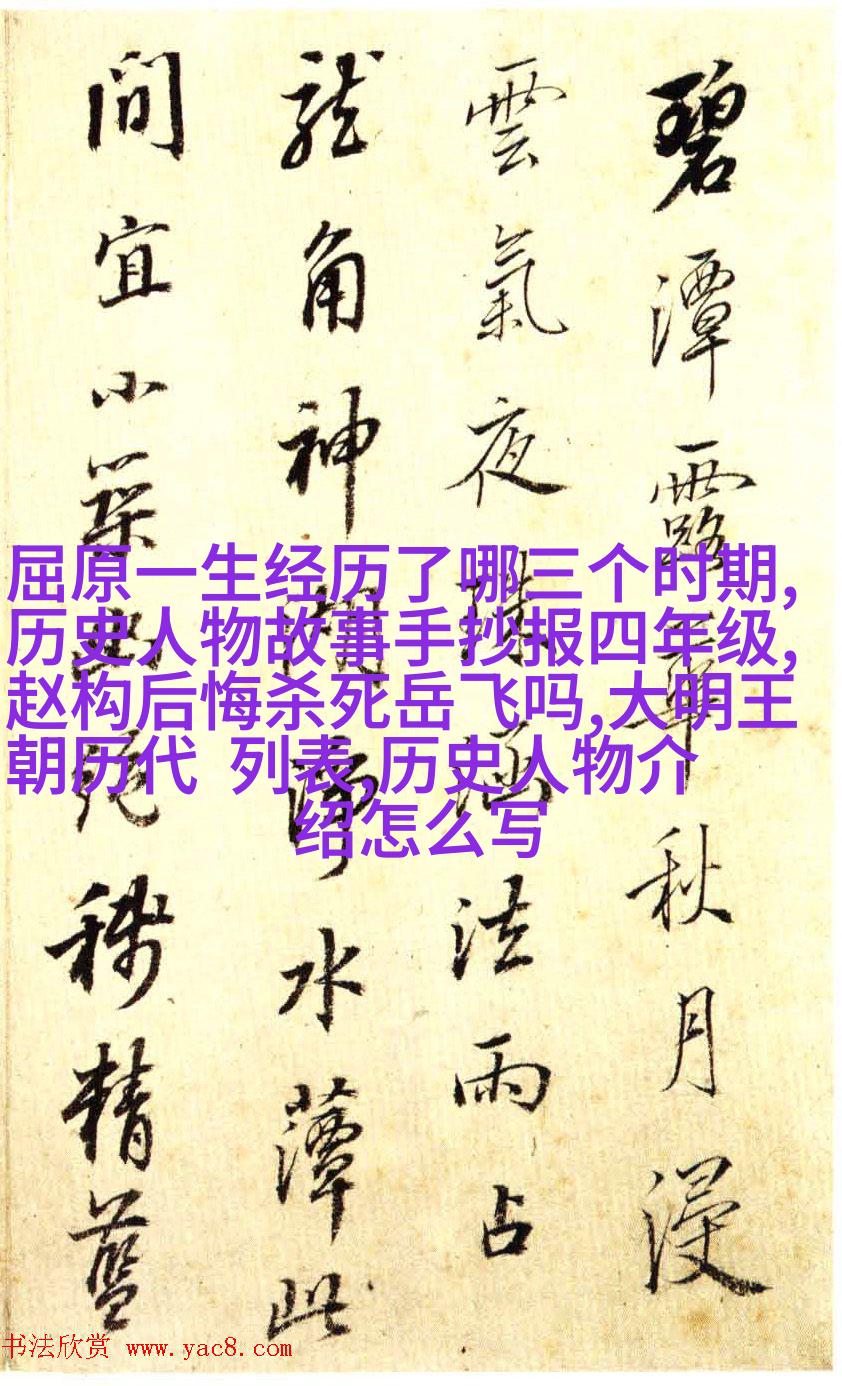 碧潭露華秋月浸
雲氣夜珠涵法雨占
龍角神閒淨水藫此
間宜小築幽絕稱精藍
屈原一生经历了哪三个时期,
历史人物故事手抄报四年级,
赵构后悔杀死岳飞吗,大明王
朝历代 列表,历史人物介
绍怎么写
书法欣赏 www.yac8.com